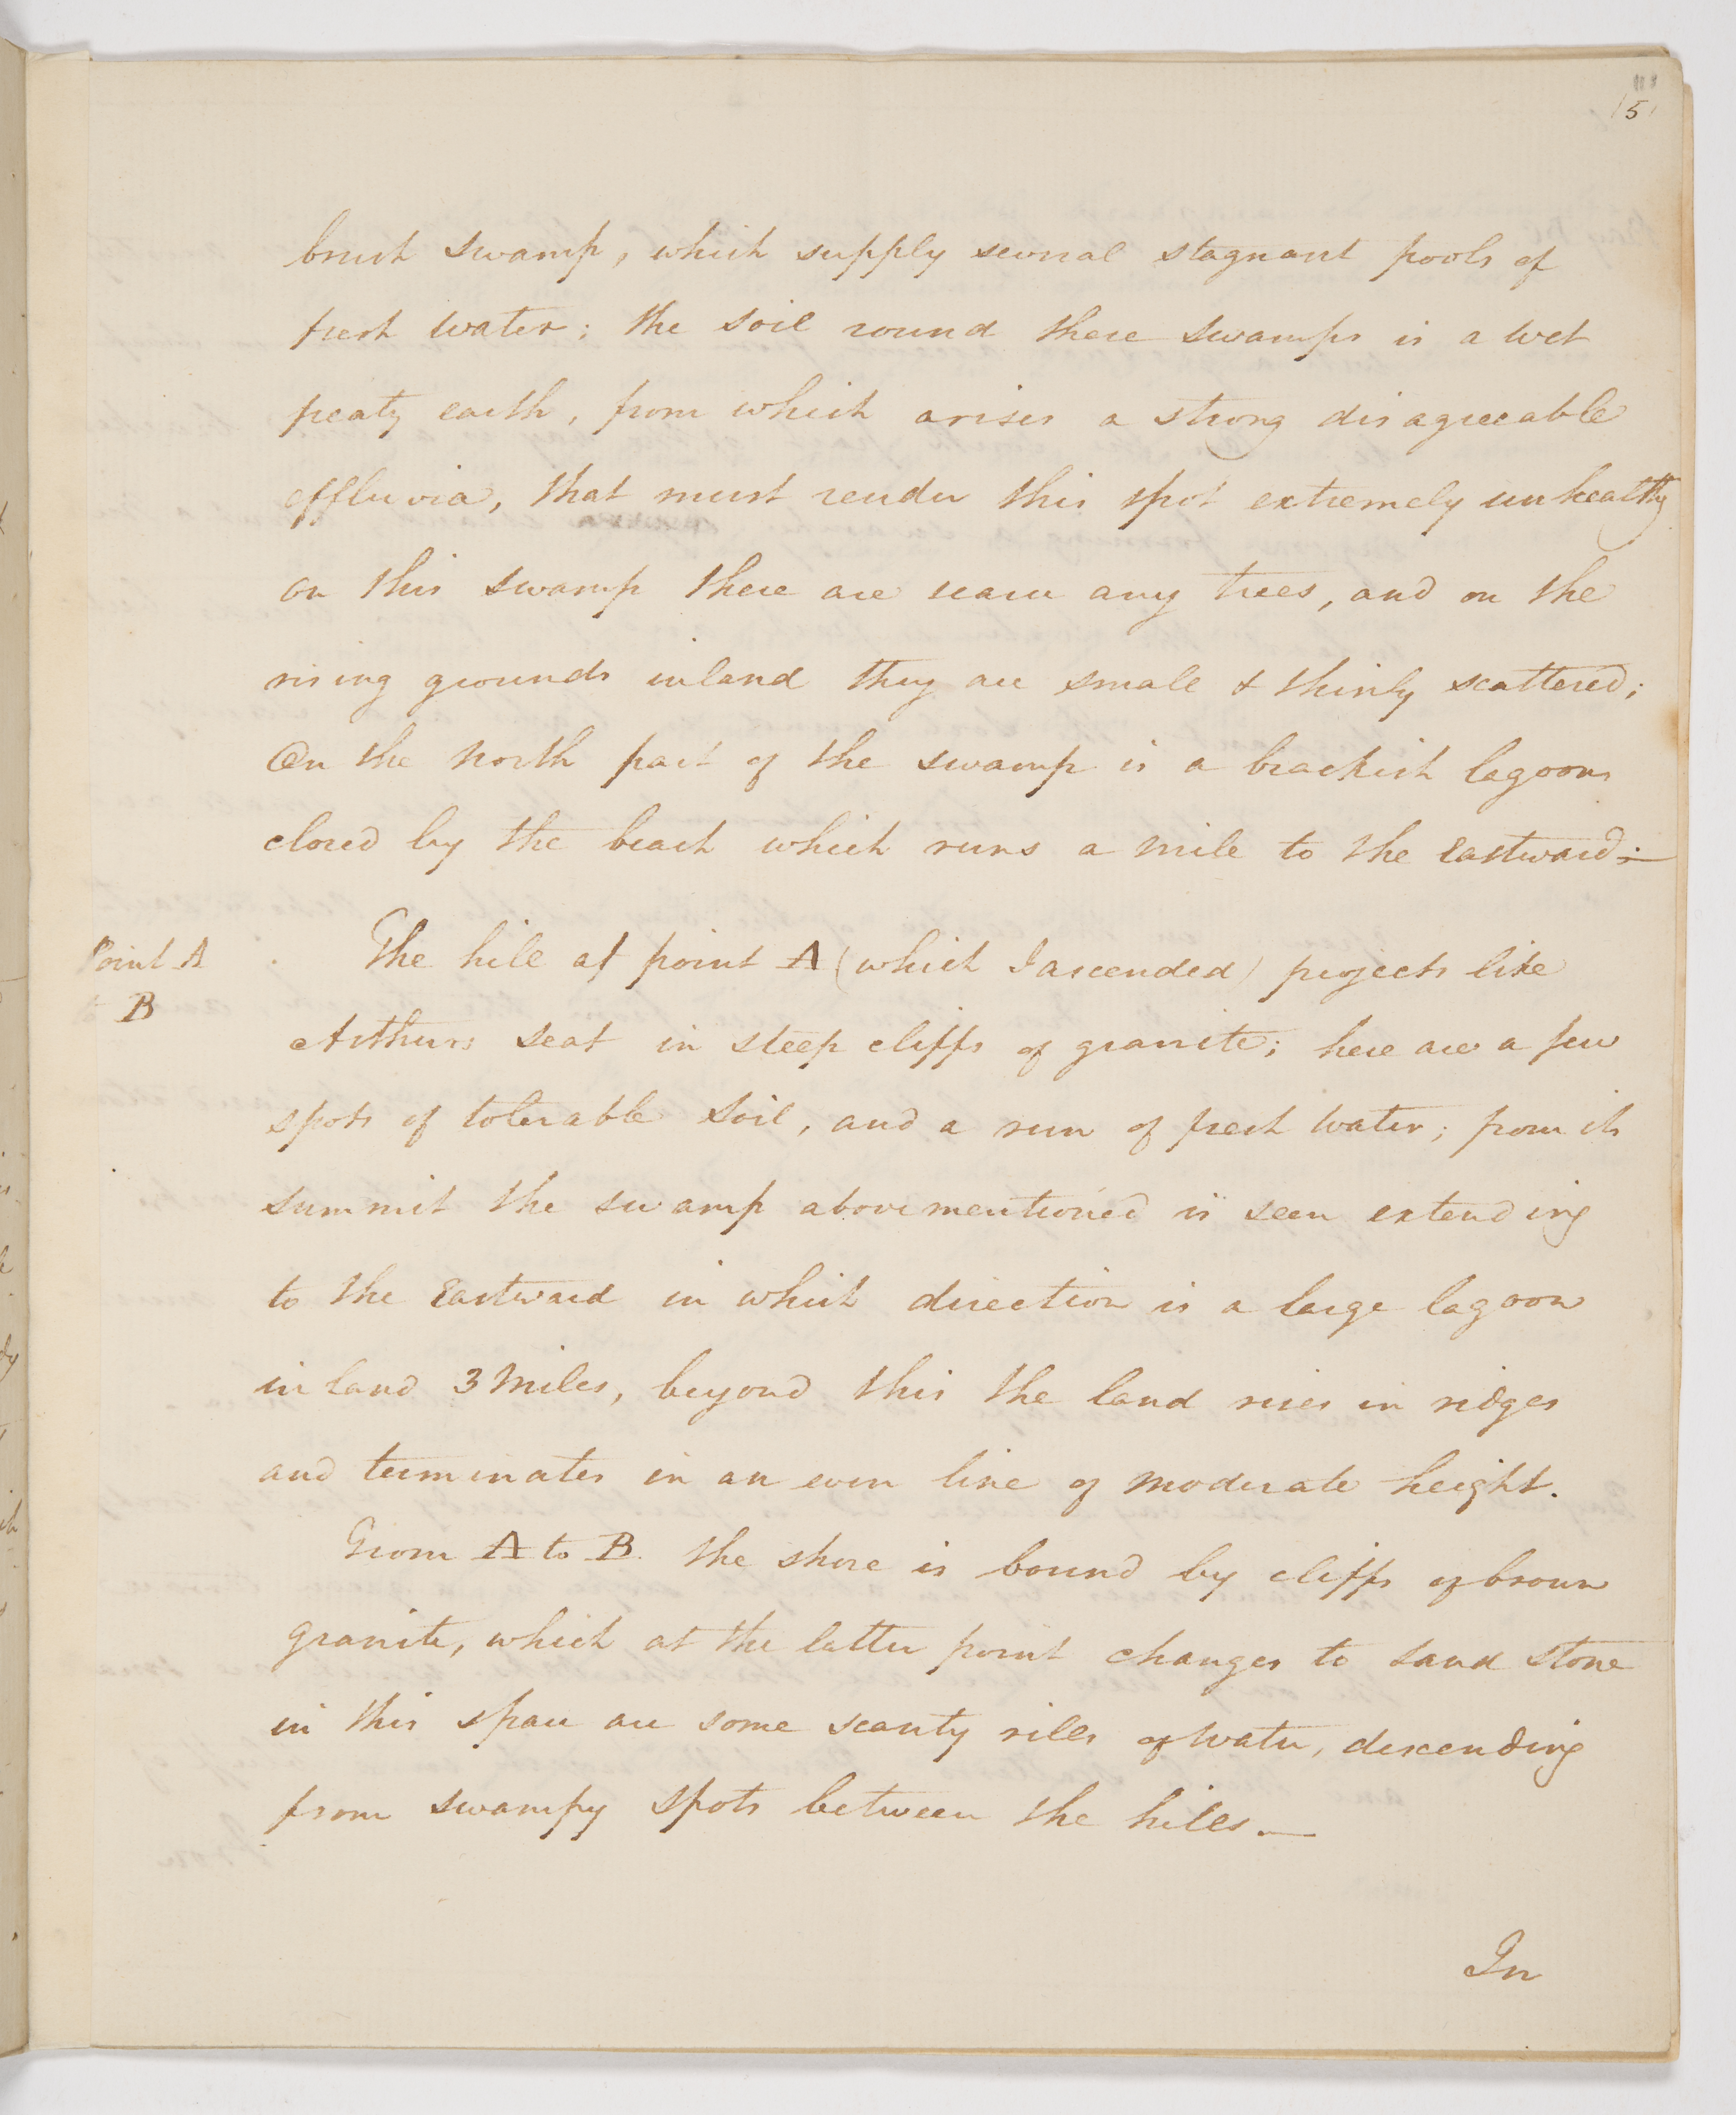 5
brush swamp, which supply several stagnant pools of
fresh water; the soil round these swamps is a wet
peaty earth, from which arises a strong disagreeable
effluvia, that must render this spot extremely unhealthy
on this swamp there are scarce any trees, and on the
rising grounds inland they are small & thinly scattered;
On the North part of the swamp is a brackish lagoon
closed by the beach which runs a mile to the Eastward;—
Point A
to B
The hill at point A (which I ascended) projects like
Arthurs Seat in steep cliffs of granite; here are a few
spots of tolerable soil, and a run of fresh water; from its
summit the swamp abovementioned is seen extending
to the Eastward in which direction is a large lagoon
inland 3 Miles, beyond this the land rises in ridges
and terminates in an even line of moderate height.
From A to B. the shore is bound by cliffs of brown
granite, which at the latter point changes to sand stone
in this space are some scanty rills of water, descending
from swampy spots between the hills.—
In